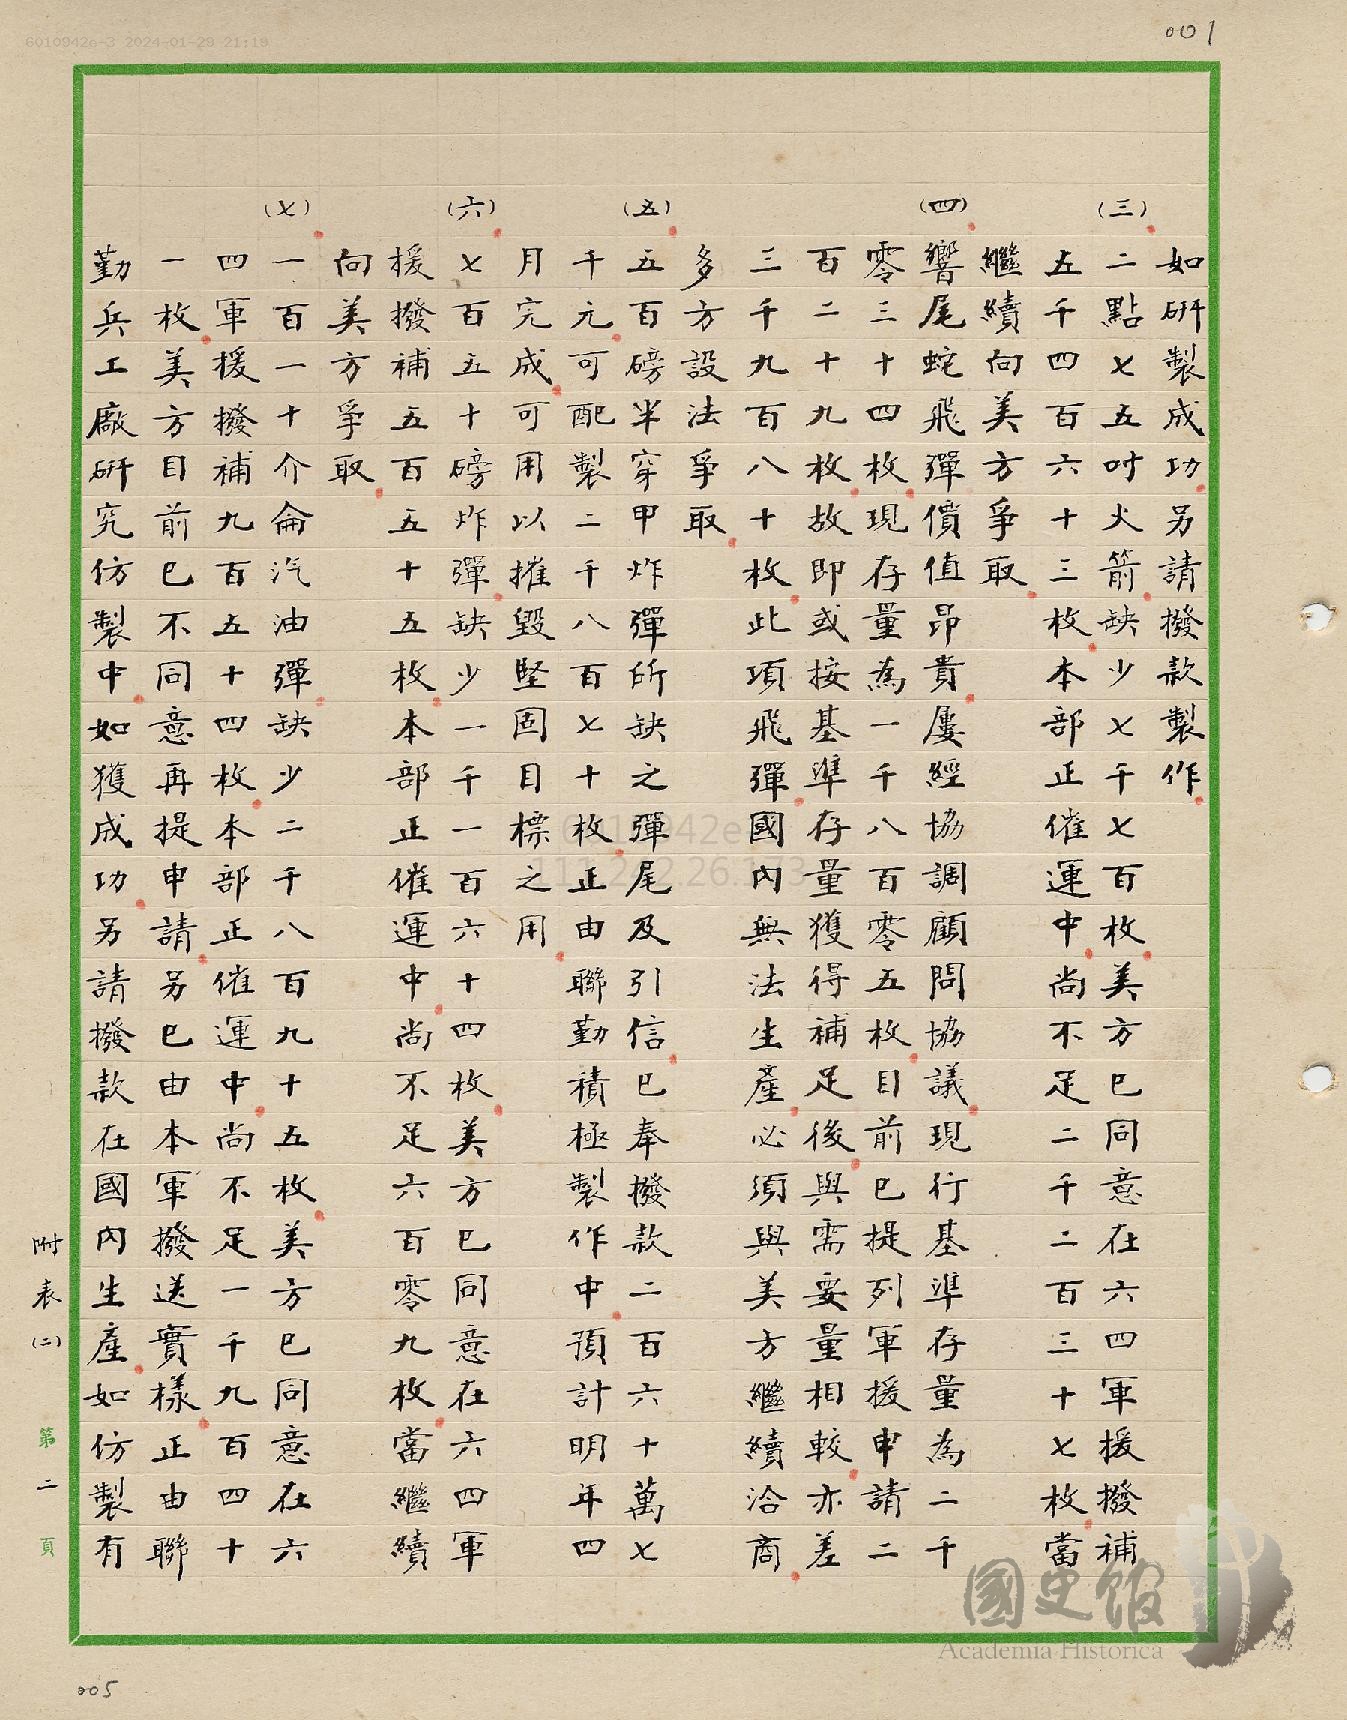 6010942e-3 2024-01-29 21:19
001
如研製成功另請撥款製作
(三)二點七五吋火箭缺少七千七百枚美方已同意在六四軍援撥補
五千四百六十三枚本部正催運中尚不足二千二百三十七枚當
繼續向美方爭取
(四)響尾蛇飛彈價值昂貴屢經協調顧問協議現行基準存量為二千
零三十四枚現存量為一千八百零五枚目前已提列軍援申請二
百二十九枚故即或按基準存量獲得補足後與需要量相較亦差
三千九百八十枚此項飛彈國內無法生產必須與美方繼續洽商
多方設法爭取
(五)五百磅半穿甲炸彈所缺之彈尾及引信已奉撥款二百六十萬七
千元可配製二千八百七十枚正由聯勤積極製作中預計明年四
月完成可用以摧毀堅固目標之用
(六)七百五十磅炸彈缺少一千一百六十四枚美方已同意在六四軍
援撥補五百五十五枚本部正催運中尚不足六百零九枚當繼續
向美方爭取
(七)一百一十介侖汽油彈缺少二千八百九十五枚美方已同意在六
四軍援撥補九百五十四枚本部正催運中尚不足一千九百四十
一枚美方目前已不同意再提申請另已由本軍撥送實樣正由聯
勤兵工廠研究仿製中如獲成功另請撥款在國內生產如仿製有
附表(二)
第二頁
005
6010942e-3
111.242.26.173
國史館
Academia Historica